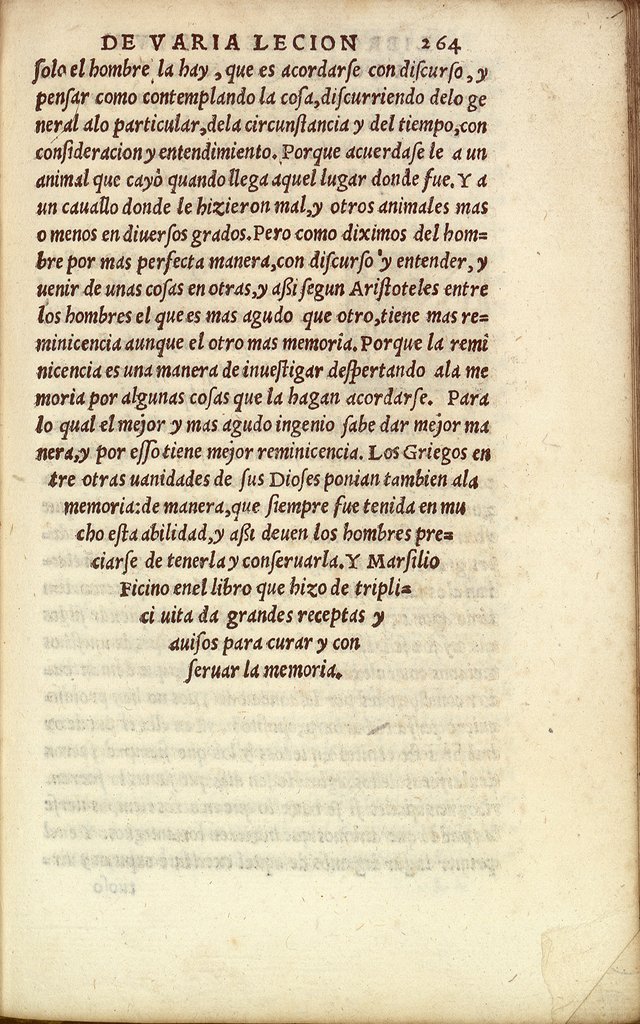 DE VARIA LECION 264
ſolo el hombre la hay, que es acordarſe con diſcurſo, y
penſar como contemplando la coſa, diſcurriendo delo ge
neral alo particular, dela circunſtancia y del tiempo, con
conſideracion y entendimiento. Porque acuerdaſe le a un
animal que cayò quando llega aquel lugar donde fue. Y a
un cauallo donde le hizieron mal, y otros animales mas
o menos en diuerſos grados. Pero como diximos del hom=
bre por mas perfecta manera, con diſcurſo y entender, y
uenir de unas coſas en otras, y aßi ſegun Ariſtoteles entre
los hombres el que es mas agudo que otro, tiene mas re=
minicencia aunque el otro mas memoria. Porque la remi
nicencia es una manera de inueſtigar deſpertando ala me
moria por algunas coſas que la hagan acordarſe. Para
lo qual el mejor y mas agudo ingenio ſabe dar mejor ma
nera, y por eſſo tiene mejor reminicencia. Los Griegos en
tre otras uanidades de ſus Dioſes ponian tambien ala
memoria: de manera, que ſiempre fue tenida en mu
cho eſta abilidad, y aßi deuen los hombres pre=
ciarſe de tenerla y conſeruarla. Y Marſilio
Ficino enel libro que hizo de tripli=
ci uita da grandes receptas y
auiſos para curar y con
ſeruar la memoria.